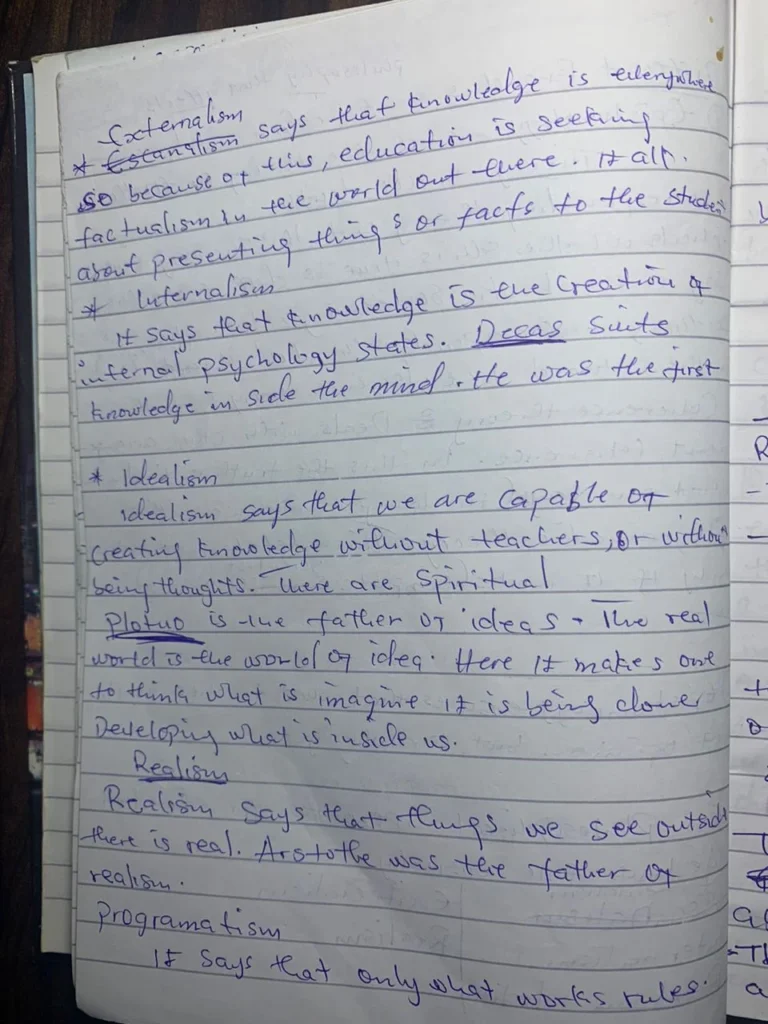 Externalism
* Estanalism says that knowledge is everywhere
so because of this, education is seeking
factualism in the world out there. It all.
about presenting things or facts to the student
* Internalism
It says that knowledge is the creation of
internal psychology states. Decas suits
knowledge in side the mind. He was the first
* Idealism
idealism says that we are capable of
creating knowledge without teachers, or without
being thoughts. There are spiritual
Plotuo is the father of ideas. The real
world is the world of idea. Here it makes one
to think what is imagine it is being
Developing what is inside us.
Realism
Realism says that things we see outside
there is real. Arstothe was the father of
realism.
Programatism
It says that only what works rules.